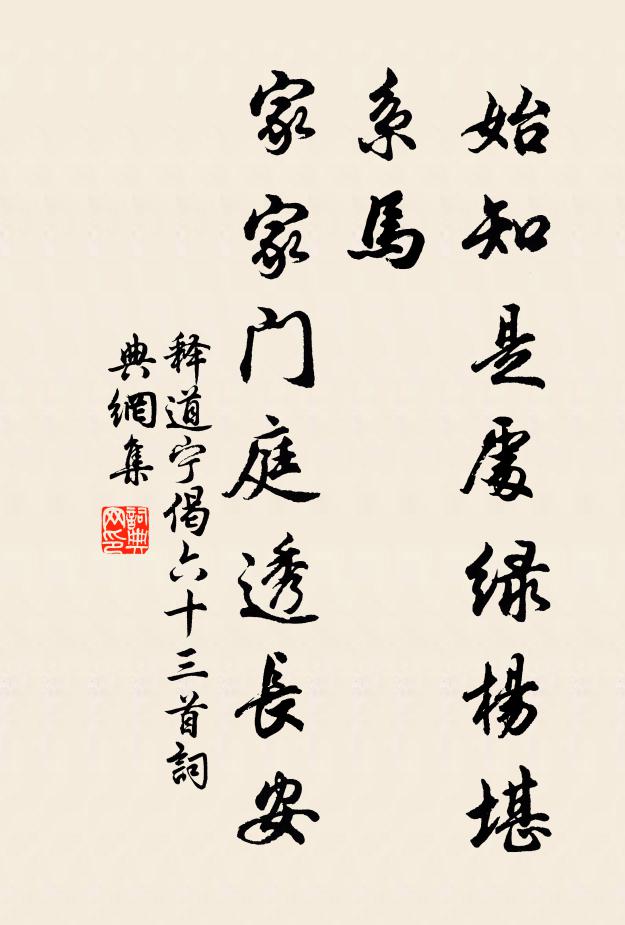 始知是處绿楊堪
系馬
家家门庭透長安
释道宁偈六十三首詞
典網集
詞典
网印